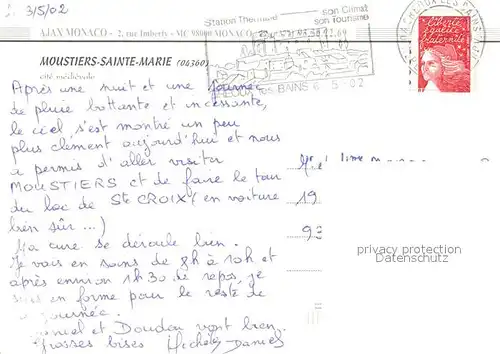 3/5/02
Station Thermale son Climat
son Tourisme
AJAX MONACO - 2, rue Imberty - MC 98000 MONACO
MOUSTIERS-SAINTE-MARIE (04360)
cité médiévale
LES BAINS 6 5 02
liberté
égalité
fraternité
Après une nuit et une journée
de pluie battante et incessante,
le ciel s'est montré un peu
plus clément aujourd'hui et nous
a permis d'aller visiter
MOUSTIERS et de faire le tour
du lac de Ste CROIX (en voiture
bien sûr...)
Ma cure se déroule bien.
Je vais en soins de 8h à 10h et
après environ 1h30 de repos, je
suis en forme pour le reste de
journée.
Daniel et Doudou vont bien.
Grosses bises Michèle Daniel
19
93
privacy protection
Datenschutz